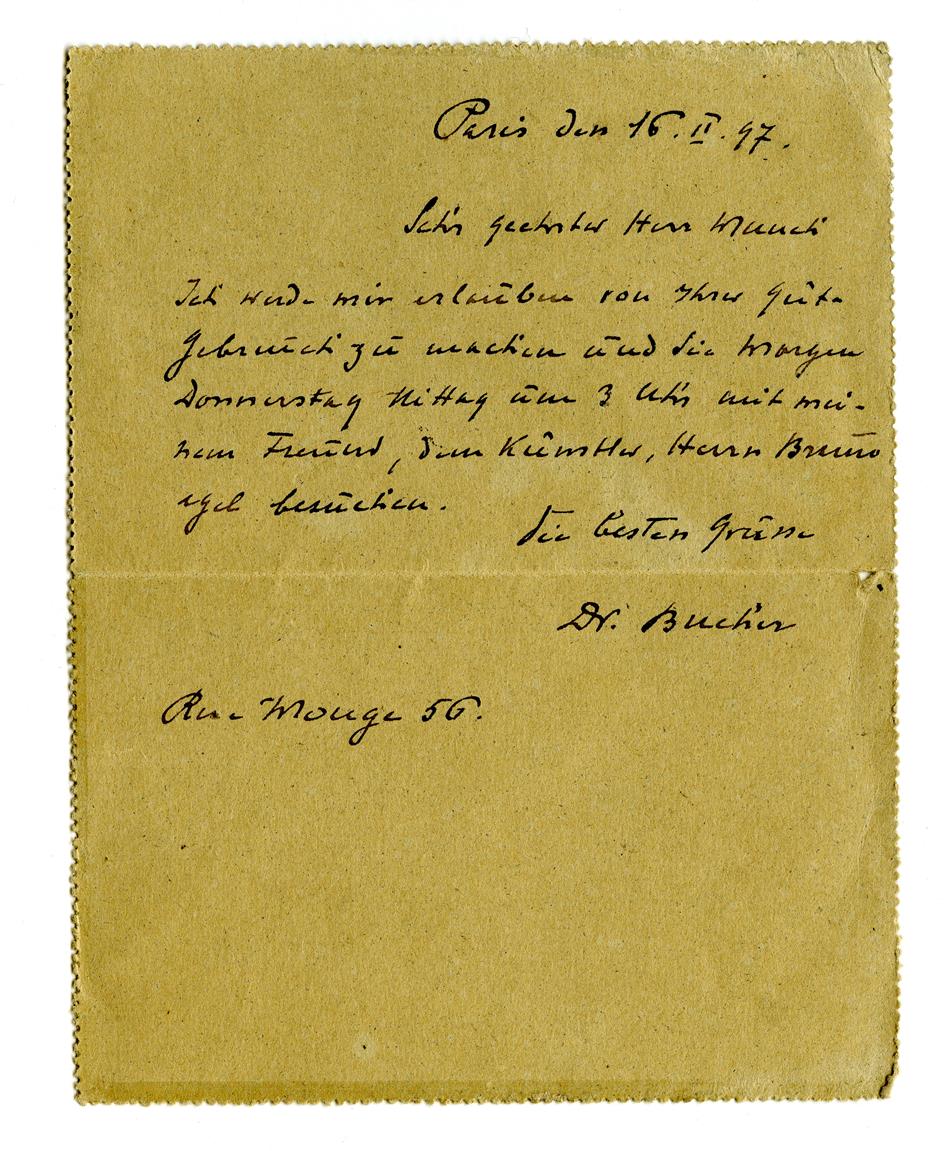 Paris den 16. II. 97.
Sehr geehrter Herr Munch
Ich werde mir erlauben von Ihrer Güte
Gebrauch zu machen und Sie Morgen
Donnerstag Mittag um 3 Uhr mit mei-
nem Freund, dem Künstler, Herrn Bruno
besuchen.
Die besten Grüsse
Dr. Bucher
Rue Monge 56.